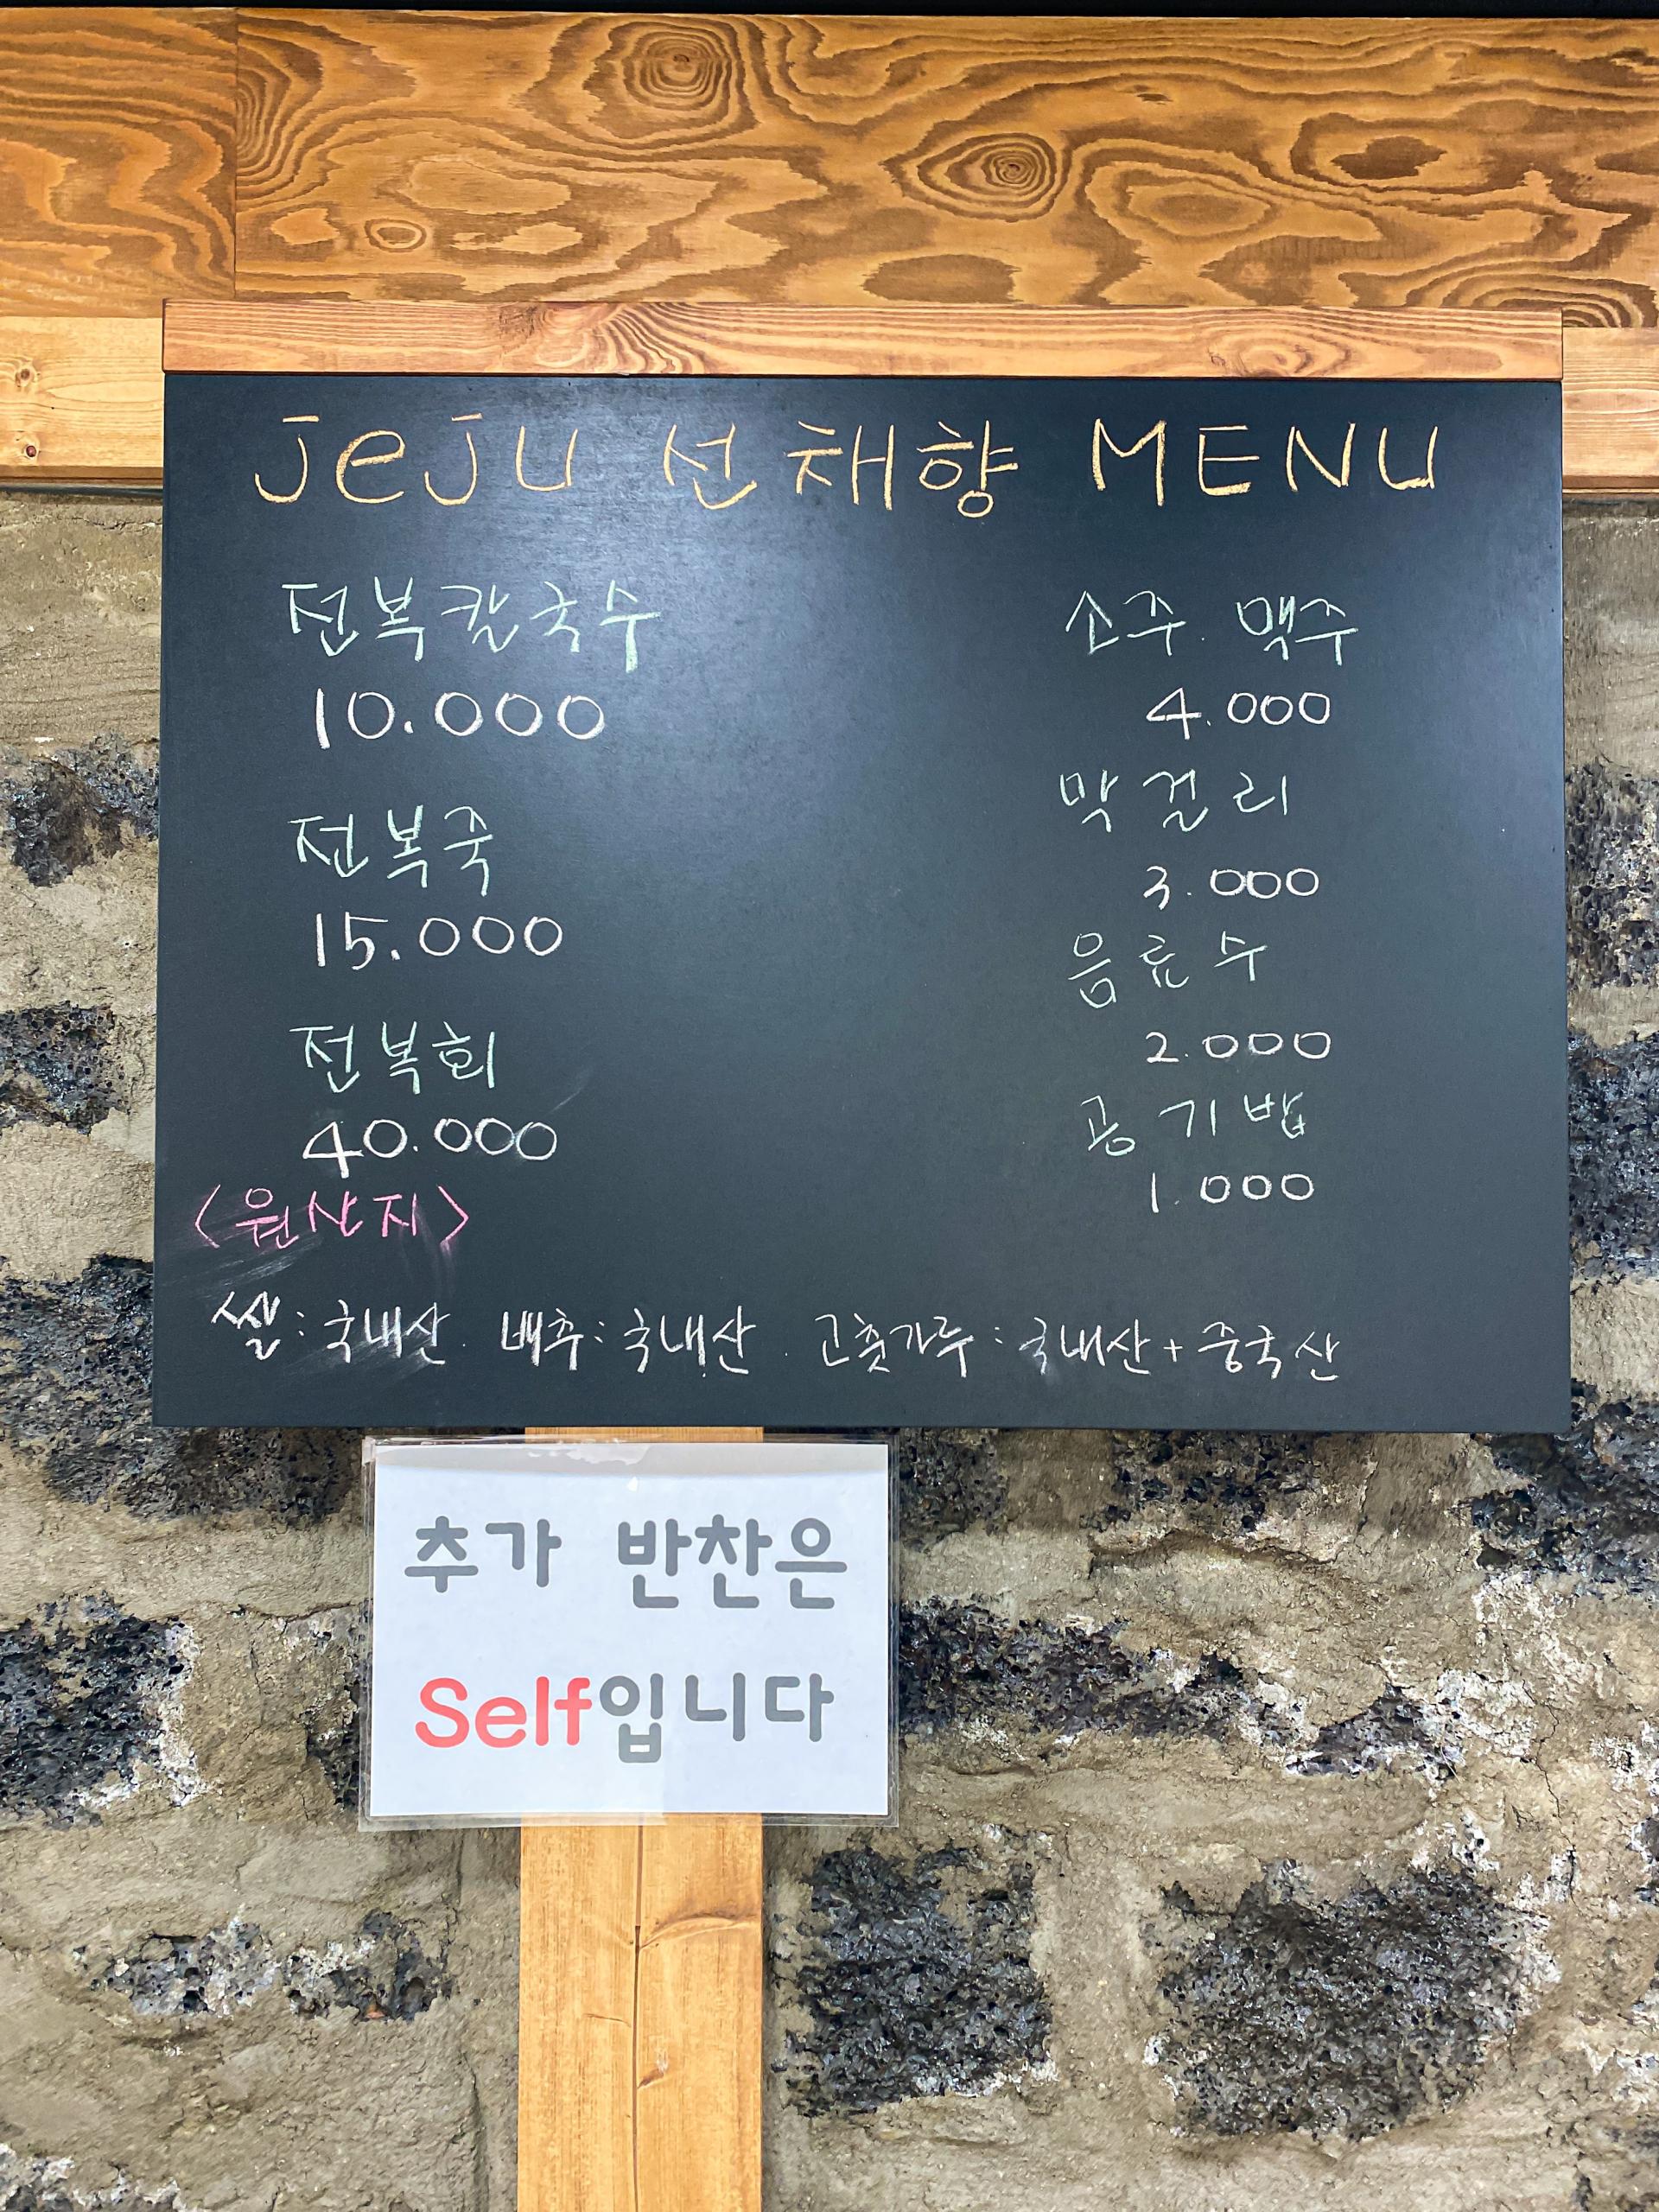 JeJu 선채향 MENU
전복칼국수
10.000
전복죽
15.000
전복회
40.000
소주. 맥주
4.000
막걸리
3.000
음료수
2.000
공기밥
1.000
<원산지>
쌀: 국내산. 배추: 국내산. 고춧가루: 국내산+중국산
추가 반찬은
Self입니다